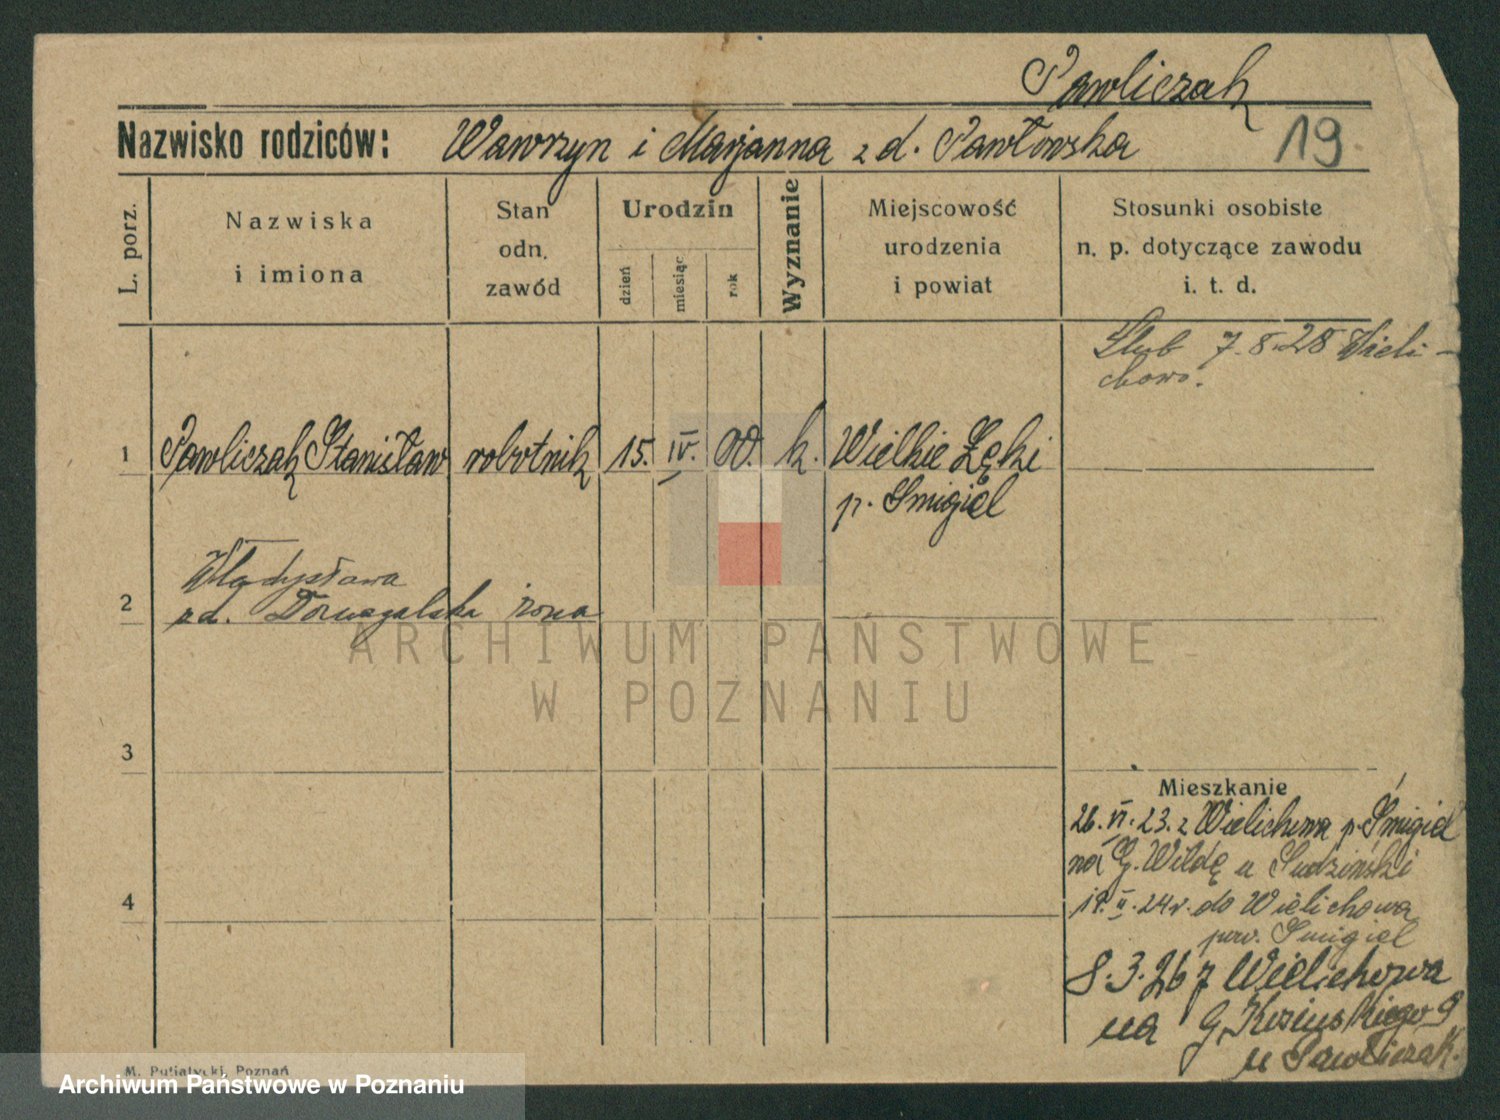 Pawliczak
Nazwisko rodziców: Wawrzyn i Marjanna z d. Pawłowska 19.
L. porz.
Nazwiska
i imiona
Stan
odn.
zawód
Urodzin
dzień
miesiąc
rok
Wyznanie
Miejscowość
urodzenia
i powiat
Stosunki osobiste
n. p. dotyczące zawodu
i. t. d.
Ślub 7.8.28 Wieli-
chowo.
1 Pawliczak Stanisław robotnik 15. IV. 00. k. Wielkie Łęki
p. Śmigiel
Władysława
2 z d. Domagalska żona
ARCHIWUM PAŃSTWOWE
W POZNANIU
3
Mieszkanie
26.VI.23. z Wielichowa p. Śmigiel
na G. Wildę u
4
19.II.24r. do Wielichowa
pow. Śmigiel
8.3.26 z Wielichowa
na G. 9
u Pawliczak.
M. Putiatycki, Poznań
Archiwum Państwowe w Poznaniu